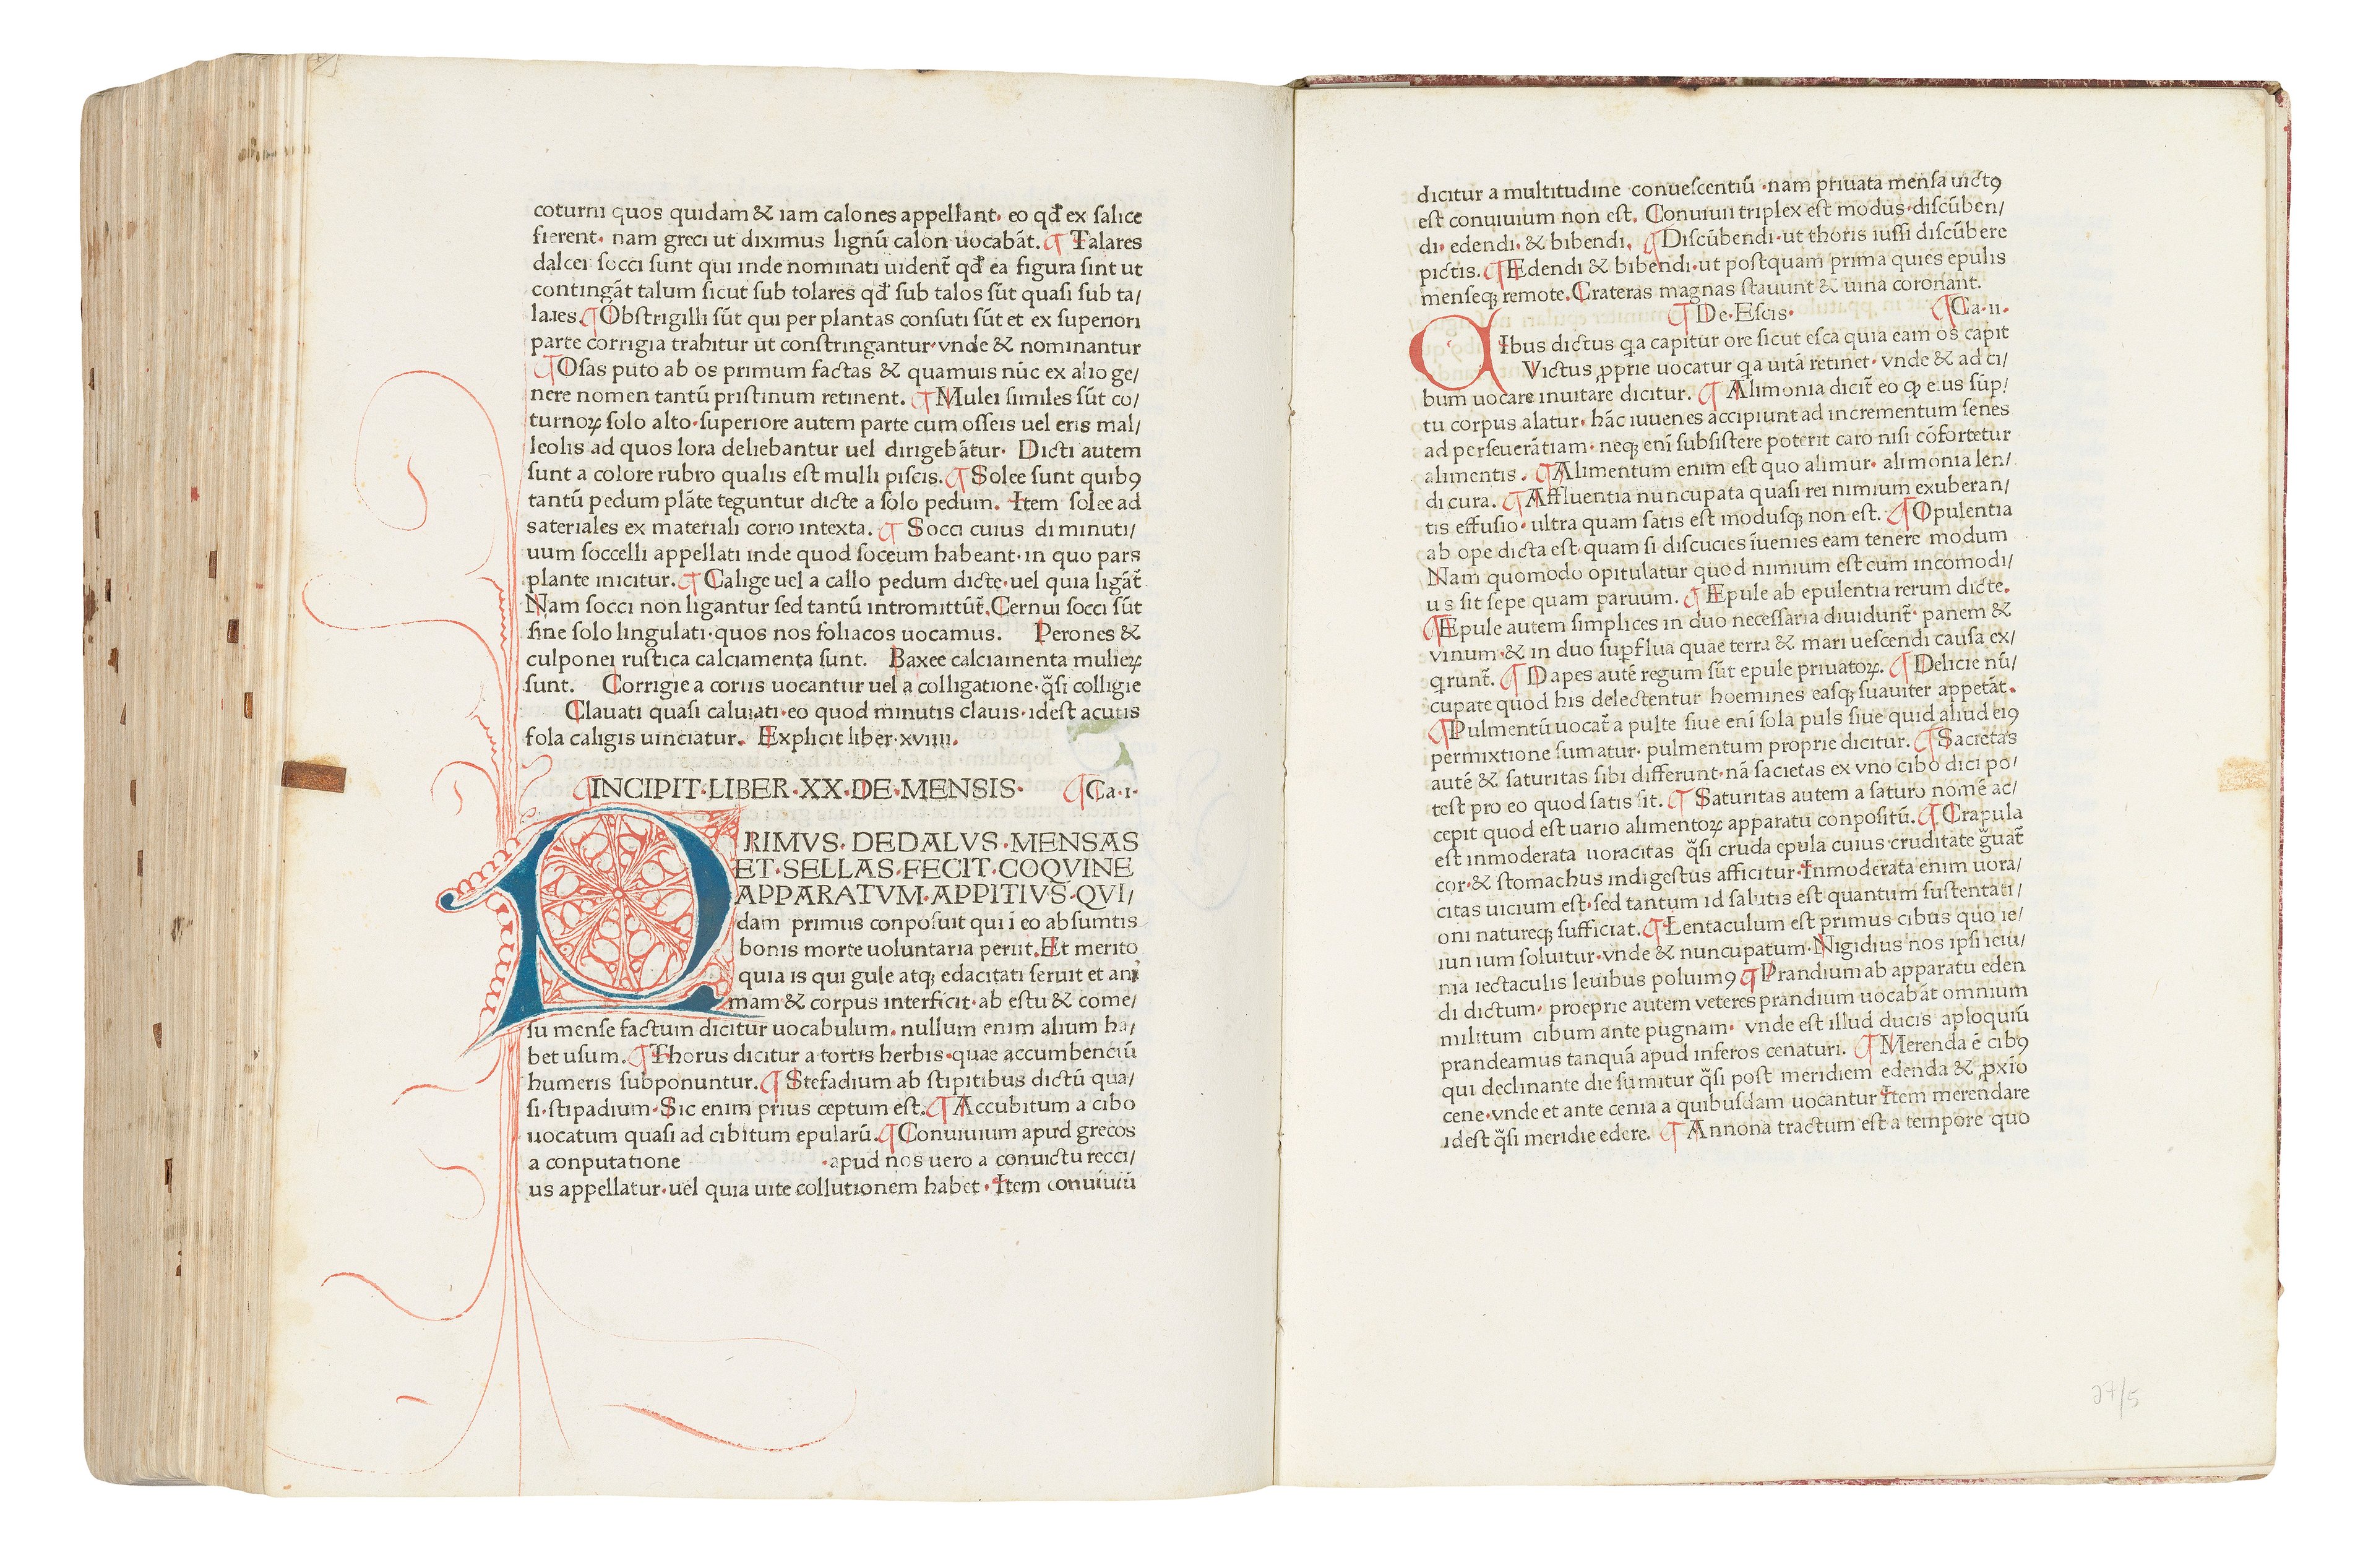 coturni quos quidam & iam calones appellant· eo qđ ex ſalice
fierent· nam greci ut diximus lignū calon uocabāt. ¶ Talares
dalcei ſocci ſunt qui inde nominati uident̄ qđ ea figura ſint ut
contingāt talum ſicut ſub tolares qđ ſub talos ſūt quaſi ſub ta/
lares. ¶ Obſtrigilli ſūt qui per plantas conſuti ſūt et ex ſuperiori
parte corrigia trahitur ut conſtringantur·vnde & nominantur
¶ Oſas puto ab os primum factas & quamuis nūc ex alio ge/
nere nomen tantū priſtinum retinent. ¶ Mulei ſimiles ſūt co/
turnoꝝ ſolo alto·ſuperiore autem parte cum oſſeis uel eris mal/
leolis ad quos lora deliebantur uel dirigebātur· Dicti autem
ſunt a colore rubro qualis eſt mulli piſcis. ¶ Solee ſunt quibꝯ
tantū pedum plāte teguntur dicte a ſolo pedum. Item ſolee ad
sateriales ex materiali corio intexta. ¶ Socci cuius diminuti/
uum ſoccelli appellati inde quod ſoceum habeant·in quo pars
plante inicitur. ¶ Calige uel a callo pedum dicte·uel quia ligāt̄
Nam ſocci non ligantur ſed tantū intromittūt̄. Cernui ſocci ſūt
ſine ſolo lingulati·quos nos foliacos uocamus. Perones &
culponei ruſtica calciamenta ſunt. Baxee calciamenta mulieꝝ
ſunt. Corrigie a coriis uocantur uel a colligatione·q̄ſi colligie
Clauati quaſi caluiati·eo quod minutis clauis·ideſt acutis
ſola caligis uinciatur. Explicit liber·xviiii.
¶INCIPIT·LIBER·XX·DE·MENSIS· ¶Ca·i·
PRIMVS·DEDALVS·MENSAS
ET·SELLAS·FECIT·COQVINE
APPARATVM·APPITIVS·QVI/
dam primus conpoſuit qui ī eo abſumtis
bonis morte uoluntaria periit. Et merito
quia is qui gule atqꝫ edacitati ſeruit et ani
mam & corpus interficit·ab eſtu & come/
ſu menſe factum dicitur uocabulum·nullum enim alium ha/
bet uſum. ¶Thorus dicitur a tortis herbis·quae accumbenciū
humeris ſubponuntur. ¶ Stefadium ab ſtipitibus dictū qua/
ſi·ſtipadium·Sic enim prius ceptum eſt. ¶ Accubitum a cibo
uocatum quaſi ad cibitum epularū. ¶Conuiuium apud grecos
a conputatione ·apud nos uero a conuictu recci/
us appellatur·uel quia uite collutionem habet·Item conuiuiū
dicitur a multitudine conueſcentiū·nam priuata menſa uictꝯ
eſt conuiuium non eſt. Conuiuii triplex eſt modus·diſcūben/
di·edendi·& bibendi. ¶Diſcūbendi·ut thoris iuſſi diſcūbere
pictis. ¶Edendi & bibendi·ut poſtquam prima quies epulis
menſeqꝫ remote. Crateras magnas ſtauunt & uina coronant.
¶De·Eſcis· ¶Ca·ii·
CIbus dictus q̓a capitur ore ſicut eſca quia eam os capit
Victus ꝓprie uocatur q̓a uitā retinet·vnde & ad ci/
bum uocare inuitare dicitur. ¶ Alimonia dicit̄ eo ꝙ eius ſūp/
tu corpus alatur·hāc iuuenes accipiunt ad incrementum ſenes
ad perſeuerātiam·neqꝫ enī ſubſiſtere poterit caro niſi cōfortetur
alimentis. ¶Alimentum enim eſt quo alimur·alimonia len/
di cura. ¶Affluentia nuncupata quaſi rei nimium exuberan/
tis effuſio·ultra quam ſatis eſt modusqꝫ non eſt. ¶Opulentia
ab ope dicta eſt·quam ſi diſcucies īuenies eam tenere modum
Nam quomodo opitulatur quod nimium eſt cum incomodi/
us ſit ſepe quam paruum. ¶Epule ab epulentia rerum dicte.
¶Epule autem ſimplices in duo neceſſaria diuidunt̄·panem &
vinum·& in duo ſuꝑflua quae terra & mari ueſcendi cauſa ex/
q̓runt̄. ¶ Dapes autē regum ſūt epule priuatoꝝ. ¶Delicie nū/
cupate quod his delectentur hoemines eaſqꝫ ſuauiter appetāt.
¶Pulmentū uocat̄ a pulte ſiue enī ſola puls ſiue quid aliud eiꝯ
permixtione ſumatur·pulmentum proprie dicitur. ¶Sacietas
autē & ſaturitas ſibi differunt·nā ſacietas ex vno cibo dici po/
teſt pro eo quod ſatis ſit. ¶ Saturitas autem a ſaturo nomē ac/
cepit quod eſt uario alimentoꝝ apparatu conpoſitū. ¶ Crapula
eſt inmoderata uoracitas q̄ſi cruda epula cuius cruditate g̃uat̄
cor·& ſtomachus indigeſtus afficitur·Inmoderata enim uora/
citas uicium eſt·ſed tantum id ſalutis eſt quantum ſuſtentati/
oni natureqꝫ ſufficiat. ¶Lentaculum eſt primus cibus quo ie/
iunium ſoluitur·vnde & nuncupatum·Nigidius nos ipſi ieiu/
nia iectaculis leuibus poluimꝯ ¶Prandium ab apparatu eden
di dictum·proeprie autem veteres prandium uocabāt omnium
militum cibum ante pugnam· vnde eſt illud ducis aploquiū
prandeamus tanquā apud inferos cenaturi. ¶Merenda ē cibꝯ
qui declinante die ſumitur q̄ſi poſt meridiem edenda & ꝓxio
cene·vnde et ante cenia a quibuſdam uocantur Item merendare
ideſt q̄ſi meridie edere. ¶ Annona tractum eſt a tempore quo
27/5